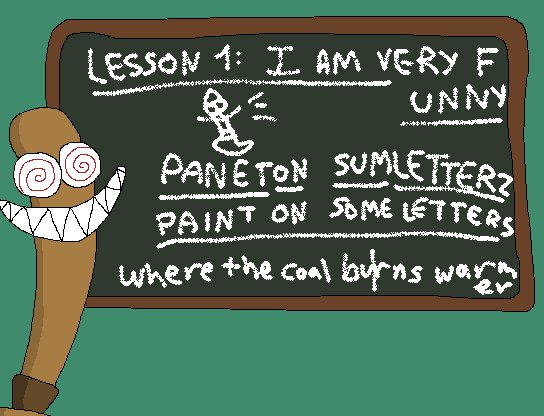 LESSON 1: I AM VERY F
UNNY
PANETON SUMLETTERZ
PAINT ON SOME LETTERS
where the coal burns warm
er